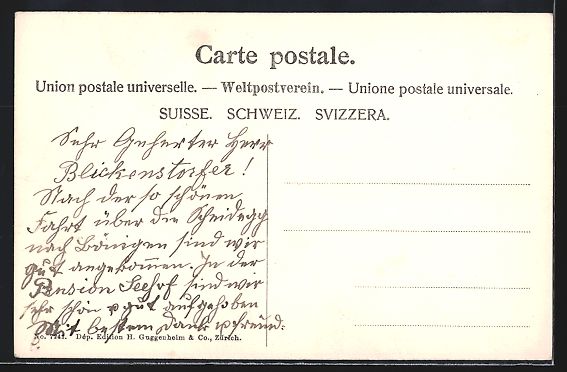 Carte postale.
Union postale universelle. — Weltpostverein. — Unione postale universale.
SUISSE. SCHWEIZ. SVIZZERA.
Sehr Geherter Herr
Blickenstorfer!
Nach der so schönen
Fahrt über die Scheidegg
nach Bönigen sind wir
gut angekommen. In der
Pension Seehof sind wir
sehr schön & gut aufgehoben
Mit bestem Dank & freund:
Dép. Edition H. Guggenheim & Co., Zürich.